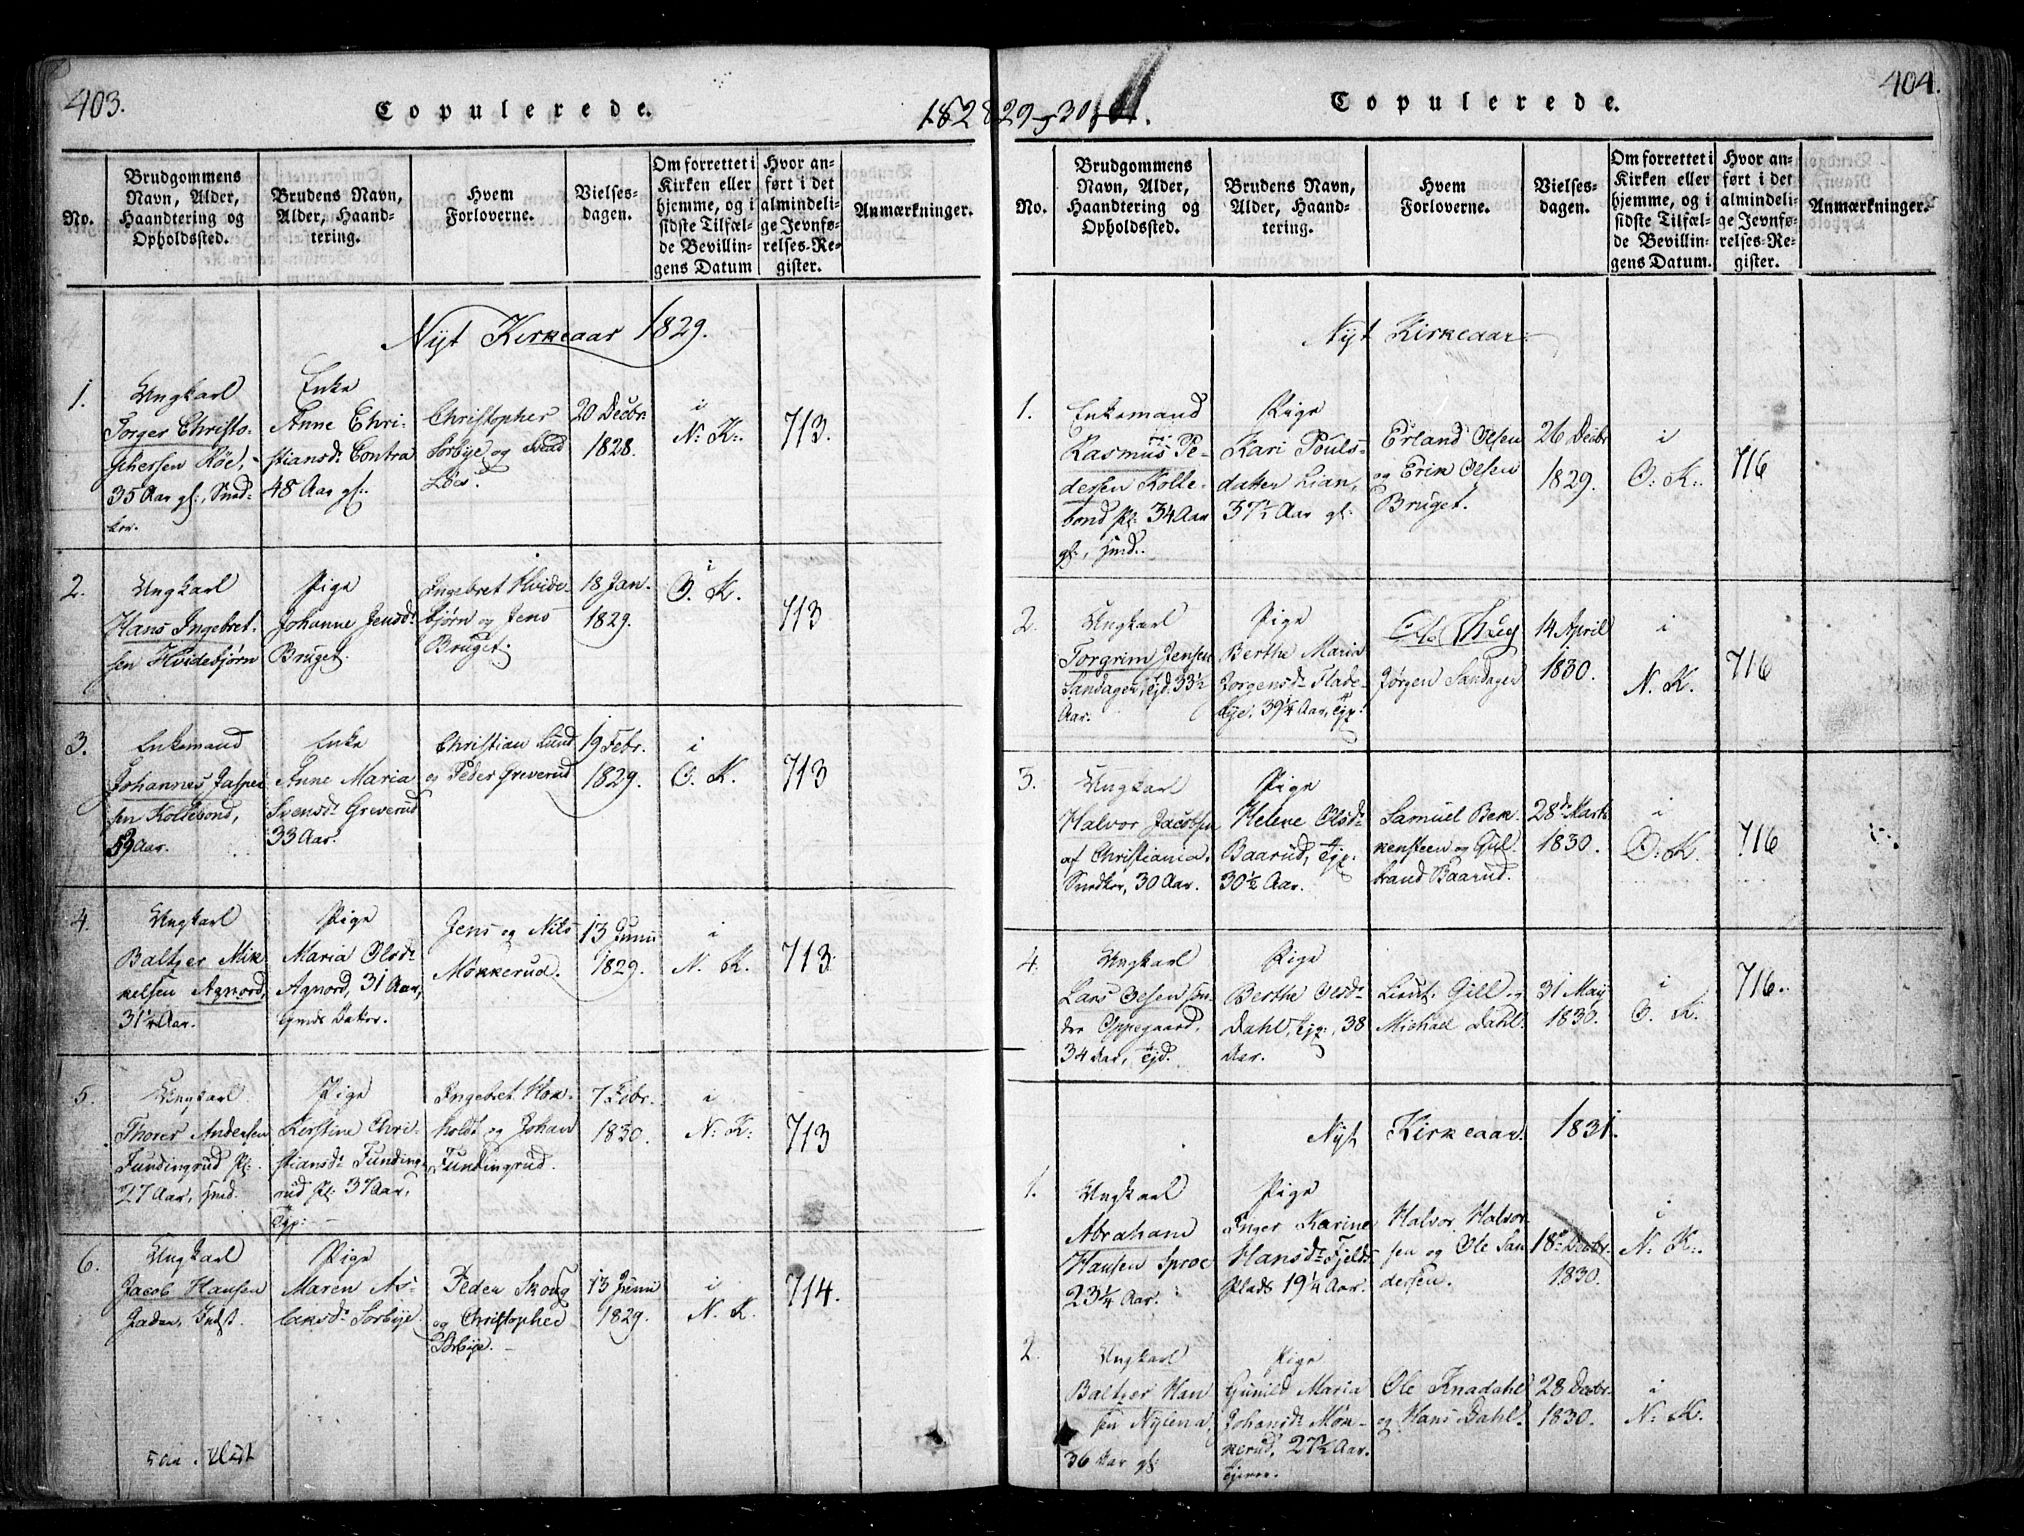 403.
Copulerede.
No.
Brudgommens
Navn, Alder,
Haandtering og
Opholdssted.
Brudens Navn,
Alder, Haand-
tering.
Hvem
Forloverne.
Vielses-
dagen.
Om forrettet i
Kirken eller
hjemme, og i
sidste Tilfæl-
de Bevillin-
gens Datum
Hvor an-
ført i det
almindeli-
ge Jevnfø-
relses-Re-
gister.
Anmærkninger.
Nyt Kirkeaar 1829.
1.
Ungkarl
Torger Christo-
phersen Röe,
35 Aar gl.,
Enke
Anne Chri-
stiansd: Contra
48 Aar gl.
Christopher
Sorbye og
Löes.
20 Decbr.
1828.
i
N: K:
713.
2.
Ungkarl
Hans Ingebret-
sen Hvidebjørn
Pige
Johanne Jensd:
Bruget.
Ingebret Hvide-
bjørn og Jens
Bruget.
18 Jan.
1829.
i
O. K.
713
3.
Enkemand
Johannes Jasper
sen Kollebond,
59 Aar.
Enke
Anne Maria
Svensd: Greverud
33 Aar.
Christian Lund
og Peder Greverud
19 Febr.
1829.
i
O. K.
713
4.
Ungkarl
Baltzer Mik
kelsen Agnord,
31½ Aar.
Pige
Maria Olsd:
Agnord, 31 Aar,
Jens og Nils
Mökkerud.
13 Junii
1829.
i
N. K.
713.
5.
Ungkarl
Thorer Andersen
Fundingrud Pl:
27 Aar, Hmd.
Pige
Kerstine Chri-
stiansd: Funding-
rud Pl: 37 Aar,
Tjp:
Ingebret Hon-
holdt og Johan
Fundingrud.
7 Febr.
1830.
i
N: K:
713
6.
Ungkarl
Jacob Hansen
Pige
Maren As-
laksd: Sorbye.
Peder Skoug
og Christopher
Sorbye.
13 Junii
1829.
i
N. K.
714.
404.
Copulerede.
No.
Brudgommens
Navn, Alder,
Haandtering og
Opholdssted.
Brudens Navn,
Alder, Haand-
tering.
Hvem
Forloverne.
Vielses-
dagen.
Om forrettet i
Kirken eller
hjemme, og i
sidste Tilfæl-
de Bevillin-
gens Datum.
Hvor an-
ført i det
almindeli-
ge Jevnfø-
relses-Re-
gister.
Anmærkninger.
Nyt Kirkeaar.
1.
Enkemand
Rasmus Pe-
dersen Kolle-
bond Pl: 34 Aar
gl., Hmd.
Pige
Kari Pouls-
datter Lian,
37½ Aar gl:
Erland Olsen
og Erik Olsen
Bruget.
26 Decbr
1829.
i
O: K:
716
2.
Ungkarl
Torgrim Jensen
Sandager, Tjd. 33½
Aar.
Pige
Berthe Maria
Jorgensd: Flade-
bye, 39¼ Aar, Tjp:
Jörgen Sandager
14 April
1830.
i
N. K.
716
3.
Ungkarl
Halvor Jacobsen
af Christiania,
Snedker, 30 Aar.
Pige
Helene Olsd:
Baarud, Tjp:
30½ Aar.
Samuel Bek
kensteen og Gul
brand Baarud.
28de Marts
1830.
i
O: K.
716
4.
Ungkarl
Lars Olsen søn-
dre Oppegaard,
34 Aar, Tjd.
Pige
Berthe Olsd:
Dahl, Tjp:, 38
Aar.
Lieut: Gill og
Michael Dahl.
31 May
1830.
i
O. K.
716.
Nyt Kirkeaar 1831.
1.
Ungkarl
Abraham
Hansen Sproe
23¼ Aar.
Pige
Inger Karine
Hansd: Fjelds
Plads 19¼ Aar.
Halvor Halvor
sen og Ole San
dersen.
18de Decbr.
1830.
i
N. K:
2.
Ungkarl
Baltzer Han
sen Nylena,
36 Aar gl:
Pige
Gunild Maria
Johansd: Møk-
kerud, 27½ Aar.
Ole Knadahl
og Hans Dahl.
28 Decbr.
1830.
i
N: K.